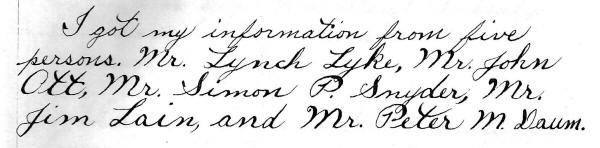 I got my information from five
persons. Mr. Lynch Lyke, Mr. John
Ott, Mr. Simon P. Snyder, Mr.
Jim Lain, and Mr. Peter M. Daum.